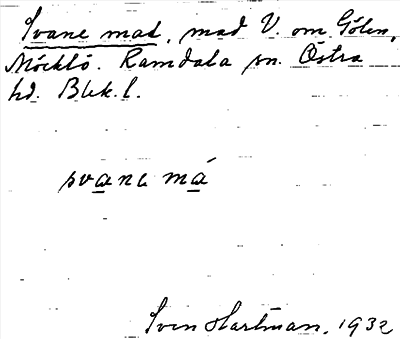 Svane mad, mad V. om Gölen,
Möcklö. Ramdala sn. Östra
hd. Blek. l.
svanɐ má
Sven Hartman, 1932